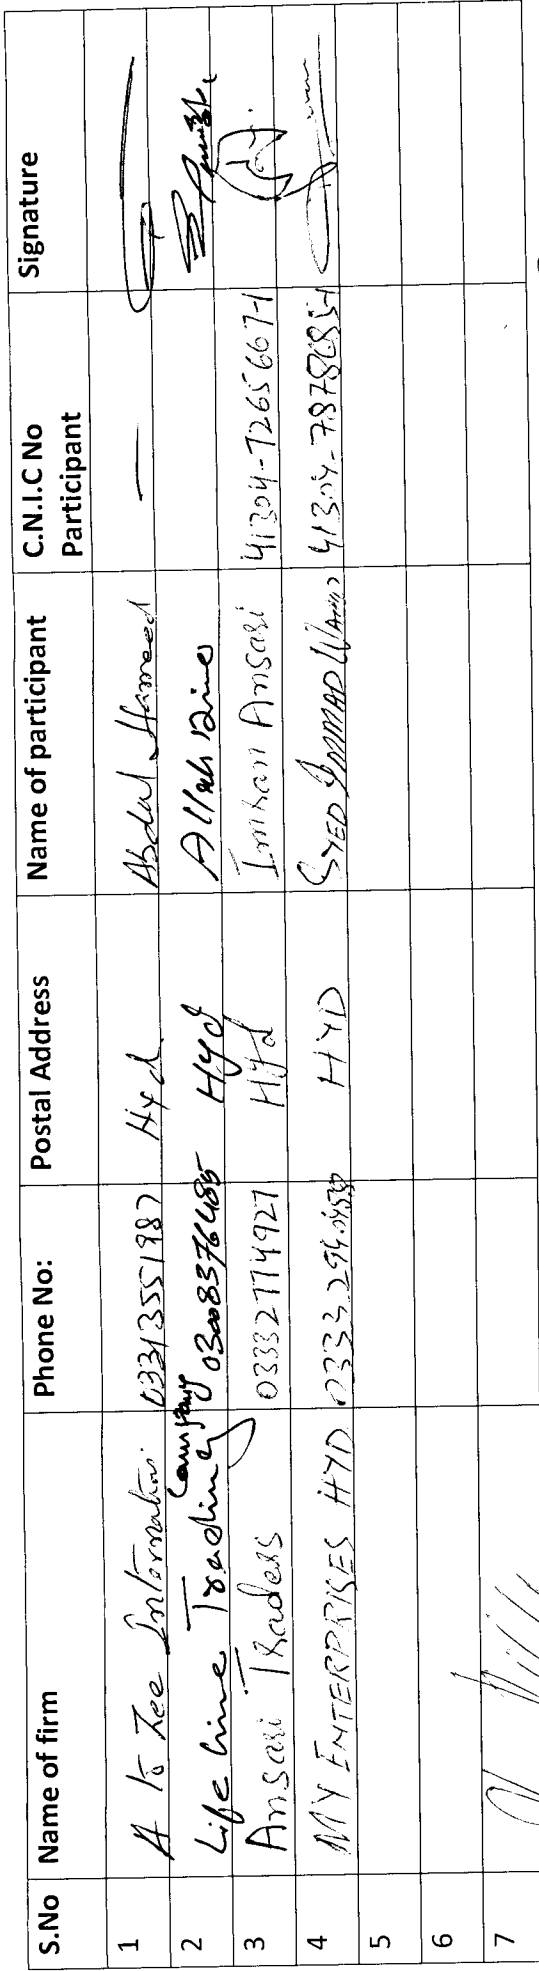 S.No Name of firm Phone No: Postal Address Name of participant C.N.I.C No Participant Signature
1 A to Zee International 03313551987 Hyd. Abdul Hameed —
2 Life Line Trading Company 03008376485 Hyd Allah Dino
3 Ansari Traders 03332774927 Hyd Imran Ansari 41304-7265667-1
4 MY ENTERPRISES HYD 0333 HYD SYED 41304-
5
6
7